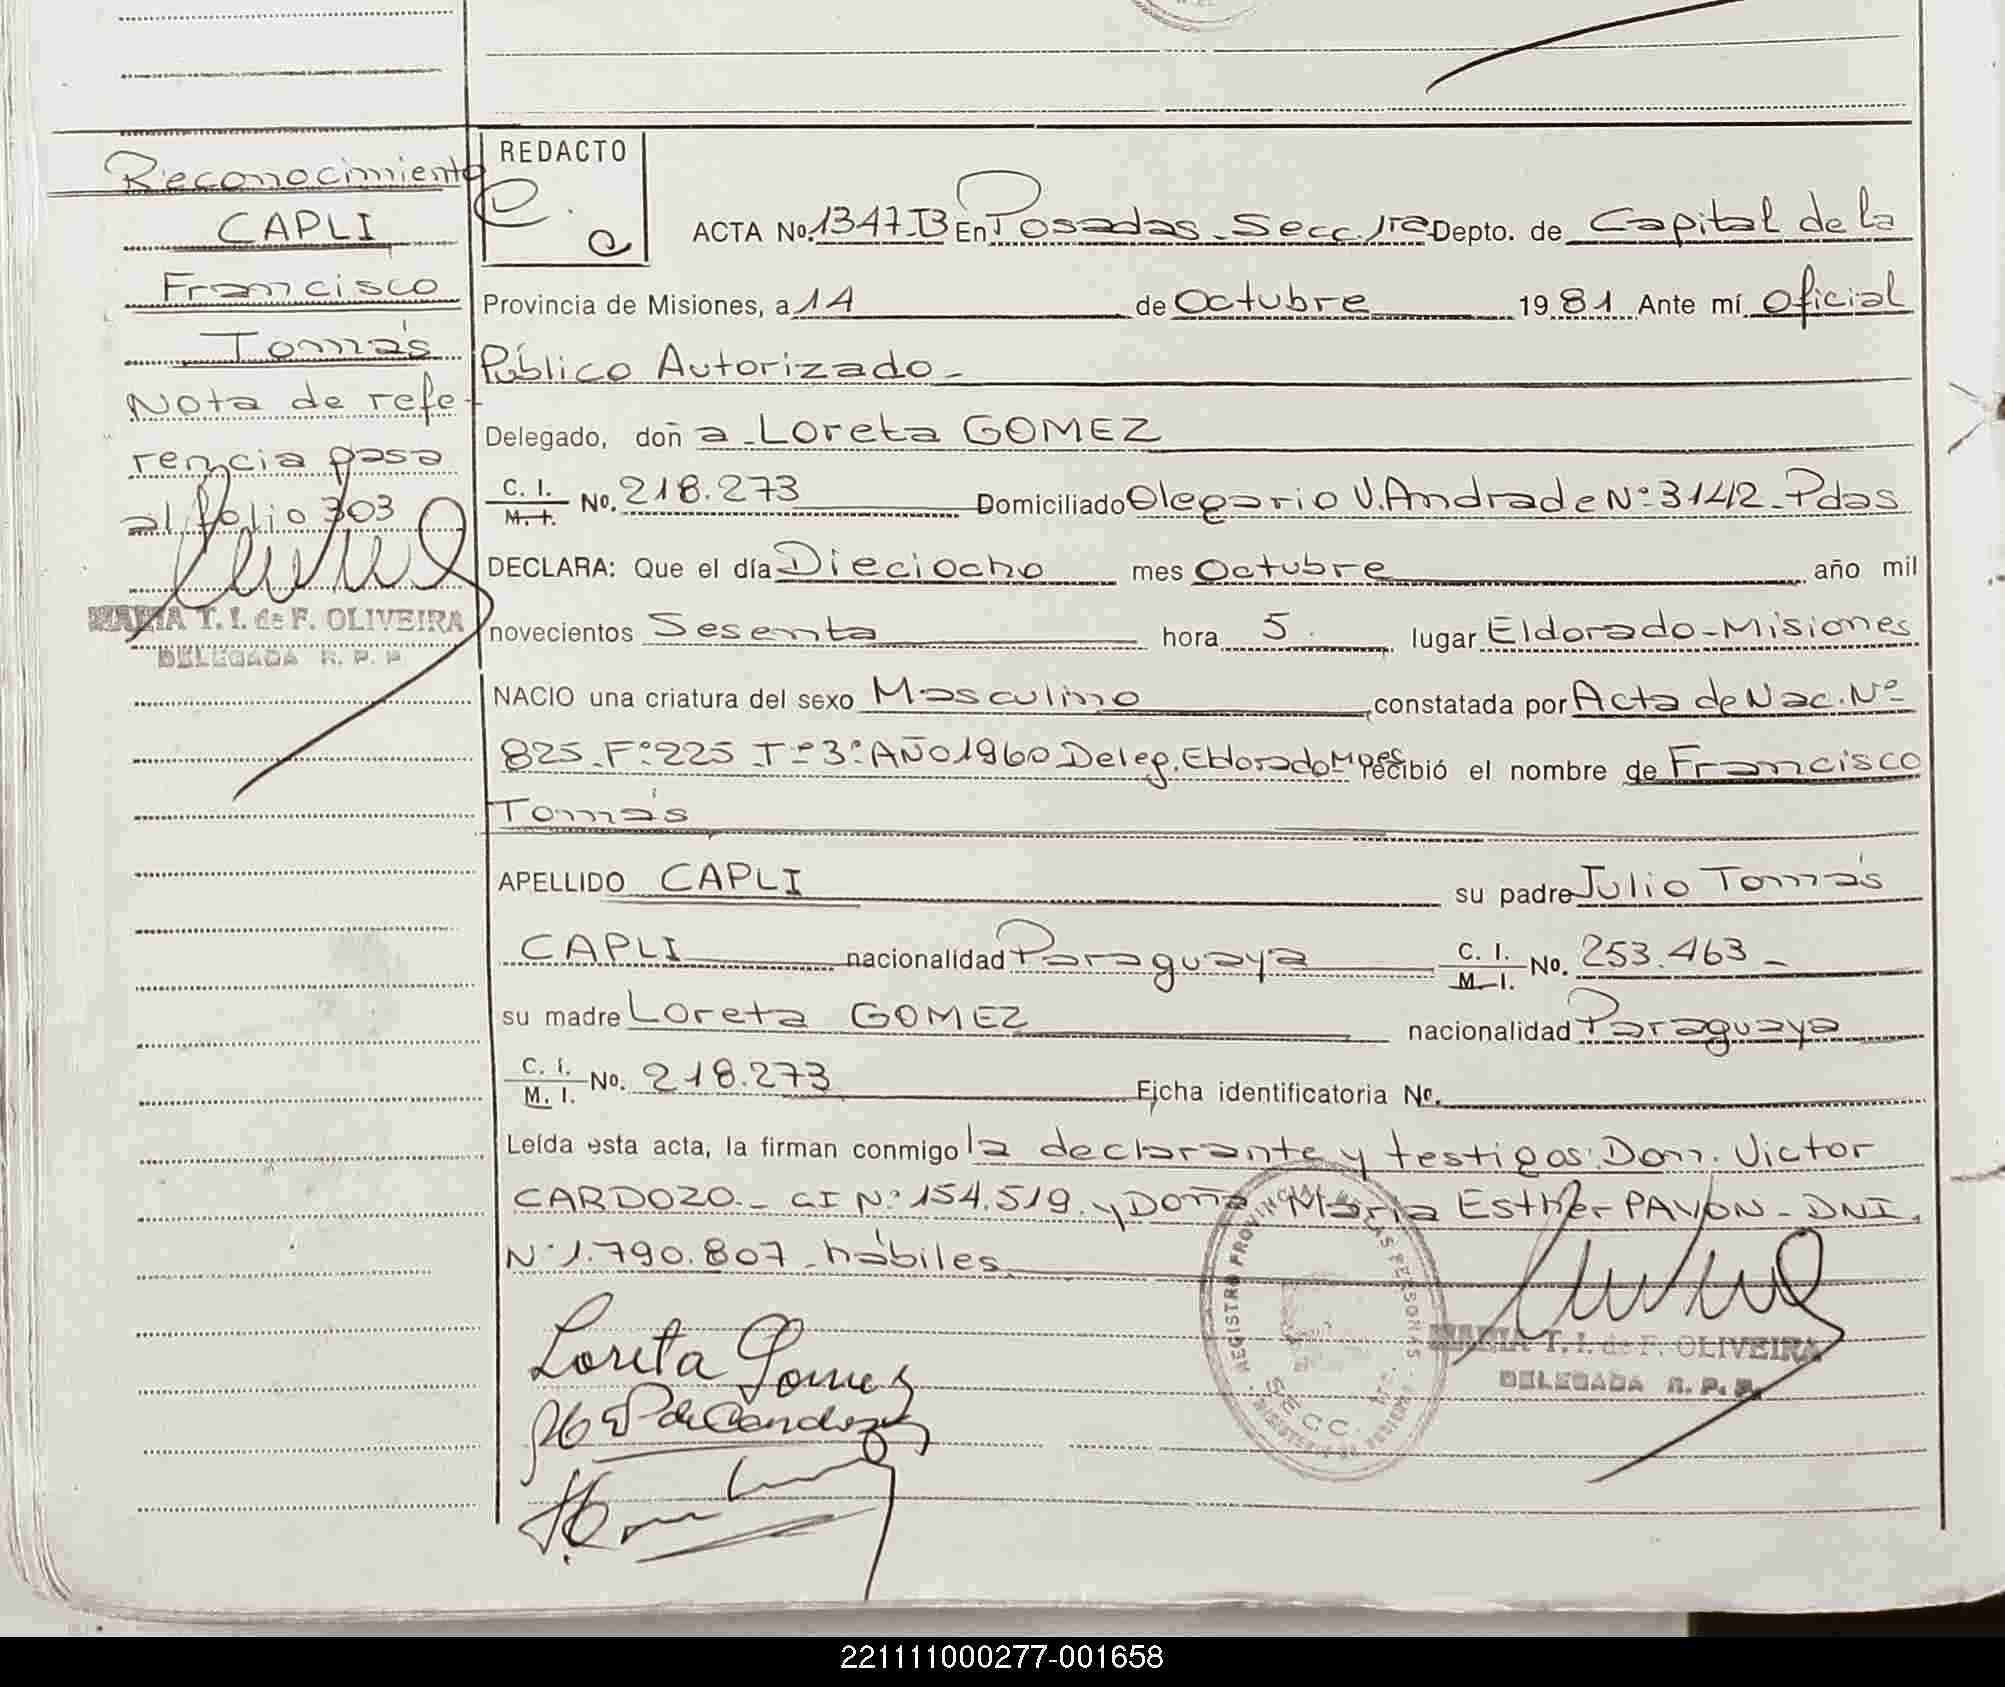 Reconocimiento
CAPLI
Francisco
Tomás
Nota de refe-
rencia pasa
al folio 303
MARIA T. I. de F. OLIVEIRA
DELEGADA R. P. P.
REDACTO
ACTA No. 1347 B En Posadas - Secc. 1ra Depto. de Capital de la
Provincia de Misiones, a 14 de Octubre 1981 Ante mí Oficial
Público Autorizado -
Delegado, doñ a - Loreta GOMEZ
C. I. M. I. No. 218.273 Domiciliado Olegario V. Andrade Nº 3142 - Pdas
DECLARA: Que el día Dieciocho mes Octubre año mil
novecientos Sesenta hora 5. lugar Eldorado - Misiones
NACIO una criatura del sexo Masculino constatada por Acta de Nac. Nº
825 - Fº 225 Tº 3º AÑO 1960 Deleg. Eldorado Mnes recibió el nombre de Francisco
Tomás
APELLIDO CAPLI su padre Julio Tomás
CAPLI nacionalidad Paraguaya C. I. M. I. No. 253.463 -
su madre Loreta GOMEZ nacionalidad Paraguaya
C. I. M. I. No. 218.273 Ficha identificatoria No.
Leída esta acta, la firman conmigo la declarante y testigos: Don. Victor
CARDOZO - CI Nº 154.519. y Doña María Esther PAVON - DNI.
Nº 1.790.807 - hábiles
Loreta Gomez
REGISTRO PROVINCIAL DE LAS PERSONAS
SECC. 1ra
MARIA T. I. de F. OLIVEIRA
DELEGADA R. P. P.
221111000277-001658